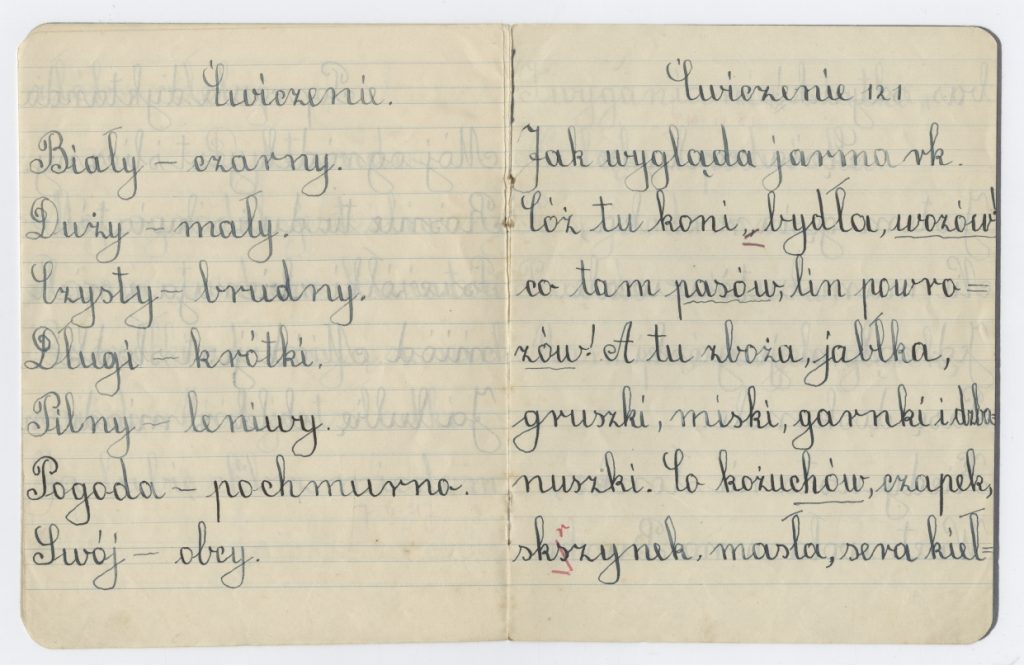 Ćwiczenie.
Biały – czarny.
Duży – mały.
Czysty – brudny.
Długi – krótki.
Pilny – leniwy.
Pogoda – pochmurno.
Swój – obcy.
Ćwiczenie 121
Jak wygląda jarmark.
Cóż tu koni, bydła, wozów!
co tam pasów, lin powro=
zów! A tu zboża, jabłka,
gruszki, miski, garnki i dzba=
nuszki. Co kożuchów, czapek,
skrszynek, masła, sera kieł=